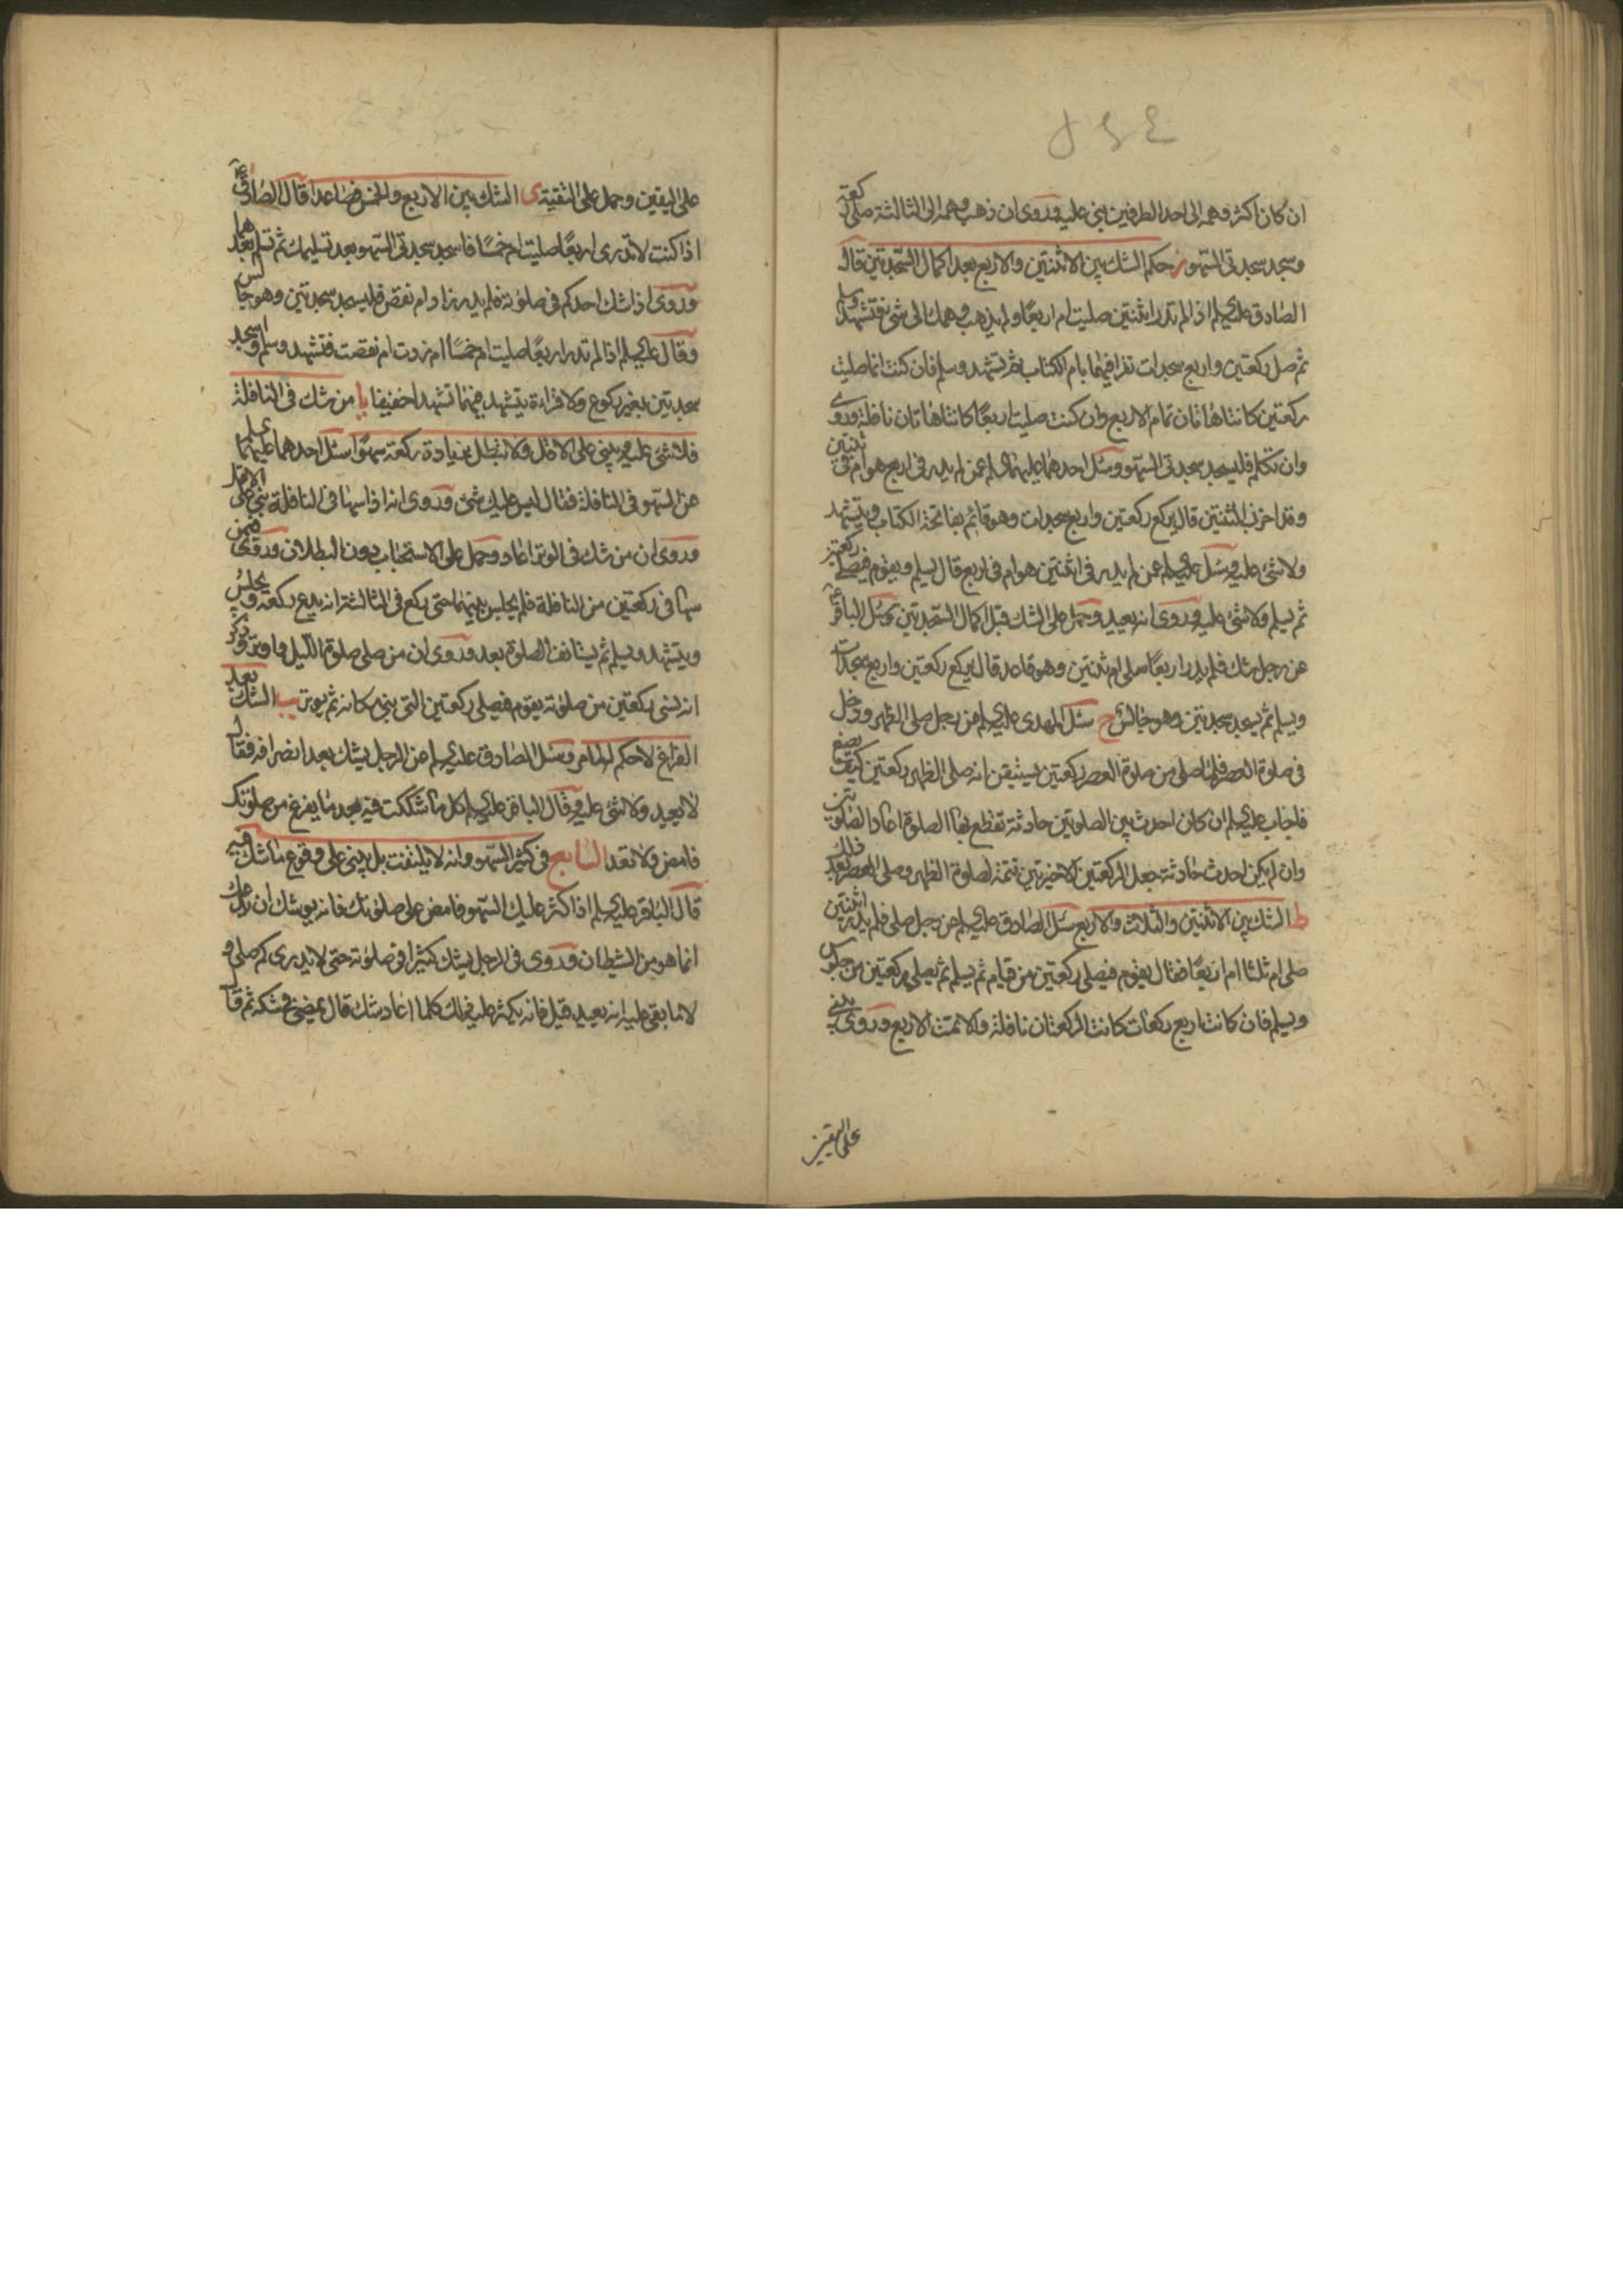 ان كان اكثر وهمه الى احد الطرفين بنى عليه وروى ان ذهب وهمه الى الثالثة صلى ركعة
وسجد سجدتى السهو ز حكم الشك بين الاثنتين والاربع بعد اكمال السجدتين قال
الصادق عليه السلم اذا لم تدر اثنتين صليت ام اربعا ولم يذهب وهمك الى شئ فتشهد وسلم
ثم صل ركعتين واربع سجدات تقرا فيهما بام الكتاب ثم تشهد وسلم فان كنت انما صليت
ركعتين كانتا هاتان تمام الاربع وان كنت صليت اربعا كانتا هاتان نافلة وروى
وان تكلم فليسجد سجدتى السهو وسئل احدهما عليهما السلم عمن لم يدر فى اربع هو ام فى ثنتين
وقد احرز الثنتين قال يركع ركعتين واربع سجدات وهو قائم بفاتحة الكتاب ويتشهد
ولا شئ عليه وسئل عليه السلم عمن لم يدر فى اثنتين هو ام فى اربع قال يسلم ويقوم فيصلى ركعتين
ثم يسلم ولا شئ عليه وروى انه يعيد وحمل على الشك قبل اكمال السجدتين وسئل الباقر ع
عن رجل شك فلم يدر اربعا صلى ام ثنتين وهو قاعد قال يركع ركعتين واربع سجدات
ويسلم ثم يسجد سجدتين وهو جالس ح سئل المهدى عليه السلم عن رجل صلى الظهر ودخل
فى صلوة العصر فلما صلى من صلوة العصر ركعتين يستيقن انه صلى الظهر ركعتين كيف يصنع
فاجاب عليه السلم ان كان احدث بين الصلوتين حادثة تقطع بها الصلوة اعاد الصلوتين
وان لم يكن احدث حادثة جعل الركعتين الاخيرتين تتمة لصلوة الظهر وصلى العصر بعد ذلك
ط الشك بين الاثنتين والثلاث والاربع سئل الصادق عليه السلم عن رجل صلى فلم يدر اثنتين
صلى ام ثلثا ام اربعا فقال يقوم فيصلى ركعتين من قيام ثم يسلم ثم يصلى ركعتين من جلوس
ويسلم فان كانت اربع ركعات كانت الركعتان نافلة والا تمت الاربع وروى يبنى
على اليقين
على اليقين وحمل على التقية ى الشك بين الاربع والخمس فصاعدا قال الصادق ع
اذا كنت لا تدرى اربعا صليت ام خمسا فاسجد سجدتى السهو بعد تسليمك ثم تسلم بعدهما
وروى اذا شك احدكم فى صلوته فلم يدر زاد ام نقص فليسجد سجدتين وهو جالس
وقال عليه السلم اذا لم تدر اربعا صليت ام خمسا ام زدت ام نقصت فتشهد وسلم واسجد
سجدتين بغير ركوع ولا قراءة يتشهد فيهما تشهدا خفيفا يا من شك فى النافلة
فلا شئ عليه ويبنى على الاقل ولا تبطل بزيادة ركعة سهوا سئل احدهما عليهما السلم
عن السهو فى النافلة فقال ليس عليك شئ وروى انه اذا سها فى النافلة بنى على الاقل
وروى ان من شك فى الوتر اعاد وحمل على الاستحباب دون البطلان وروى فيمن
سها فى ركعتين من النافلة فلم يجلس بينهما حتى ركع فى الثالثة انه يدع ركعة ويجلس
ويتشهد ويسلم ثم يستانف الصلوة بعد وروى ان من صلى صلوة الليل واوتر وذكر
انه نسى ركعتين من صلوته يقوم فيصلى ركعتين التى نسى مكانه ثم يوتر يب الشك بعد
الفراغ لا حكم له لما مر وسئل الصادق عليه السلم عن الرجل يشك بعد انصرافه فقال
لا يعيد ولا شئ عليه وقال الباقر عليه السلم كل ما شككت فيه بعد ما يفرغ من صلوتك
فامض ولا تعد السابع فى كثير السهو وانه لا يلتفت بل يبنى على وقوع ما شك فيه
قال الباقر عليه السلم اذا كثر عليك السهو فامض على صلوتك فانه يوشك ان يدعك
انما هو من الشيطان وروى فى الرجل يشك كثيرا فى صلوته حتى لا يدرى كم صلى و
لا ما بقى عليه انه يعيد قيل فانه يكثر عليه ذلك كلما اعاد شك قال يمضى فى شكه ثم قال